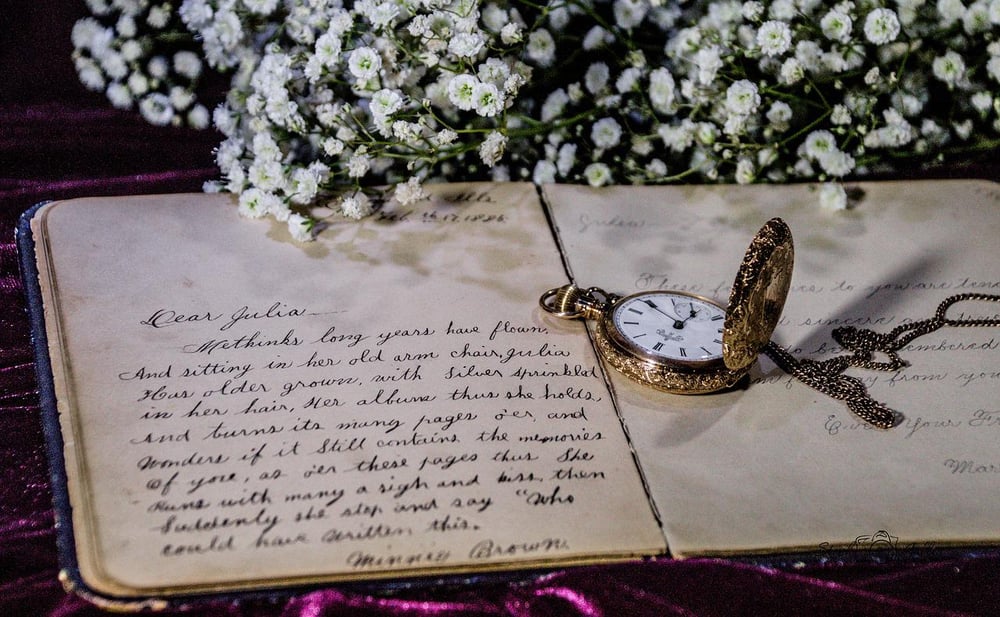 Feb 17, 1886
Dear Julia
Methinks long years have flown,
And sitting in her old arm chair, Julia
Has older grown, with Silver sprinkled
in her hair, Her album thus she holds,
And turns its many pages o'er, and
Wonders if it Still contains the memories
Of yore, as o'er these pages thus She
Runs with many a sigh and kiss, then
Suddenly she stop and say "Who
could have written this.
Minnie Brown.
Julia
to you are
sincere
to be remembered
from you
Ever Your